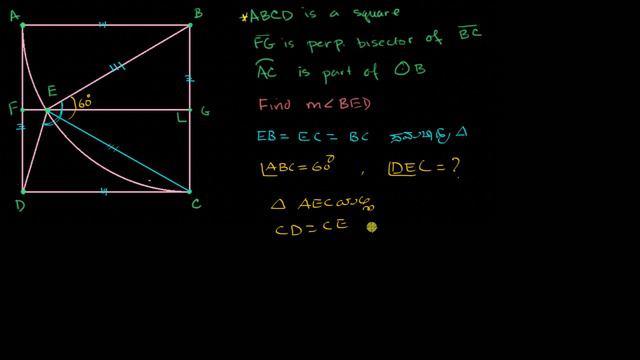 A
B
*ABCD is a square
FG is perp. bisector of BC
AC is part of ⊙B
E
60°
F
G
Find m∠BED
EB = EC = BC Δ
∠ABC = 60° , ∠DEC = ?
D
C
Δ AEC
CD = CE